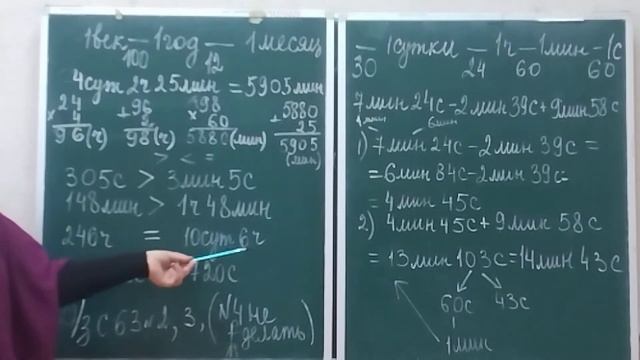 1век — 1год — 1месяц
100 12
4сут 2ч 25мин = 5905мин
24 +96 98 5880
× 4 × 60 + 25
96(ч) 98(ч) 5880(мин) 5905
(мин)
> < =
305с > 3мин 5с
148мин > 1ч 48мин
246ч = 10сут 6ч
720с
Д/З с 63 №2, 3, (№4 не
делать)
— 1сутки — 1ч — 1мин — 1с
30 24 60 60
7мин 24с - 2мин 39с + 9мин 58с
1) 7мин 24с - 2мин 39с =
= 6мин 84с - 2мин 39с =
= 4мин 45с
2) 4мин 45с + 9мин 58с
= 13мин 103с = 14мин 43с
60с 43с
1мин